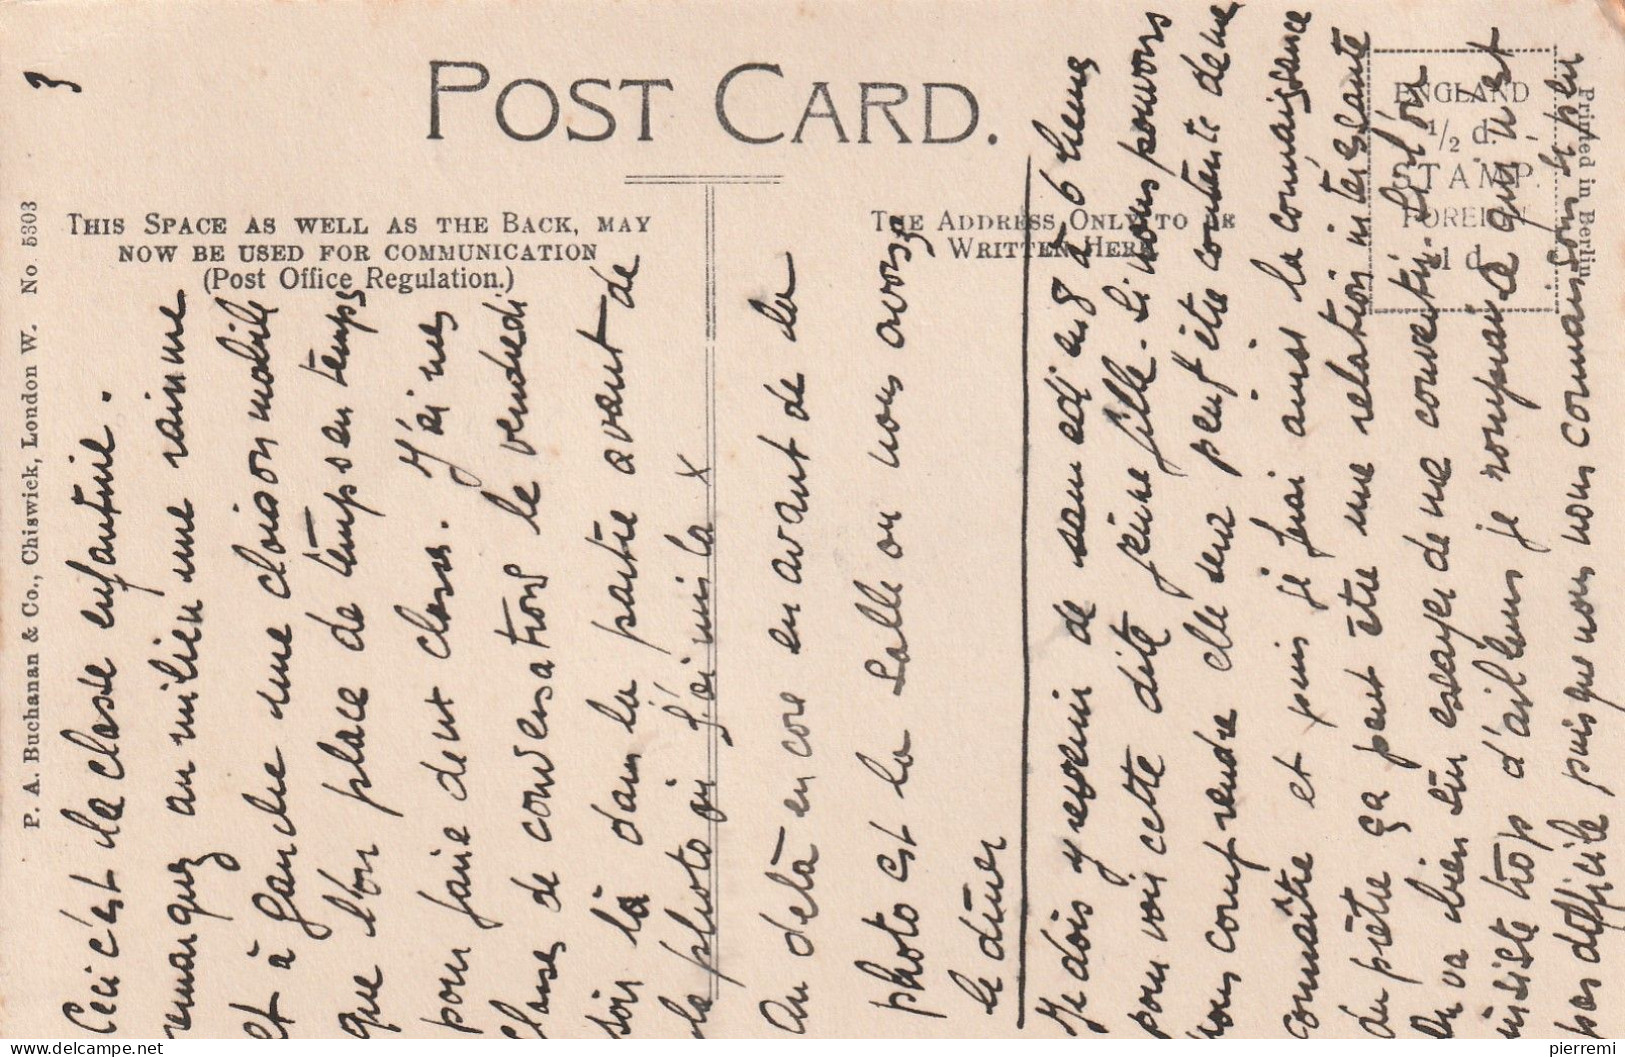 3
POST CARD.
THIS SPACE AS WELL AS THE BACK, MAY
NOW BE USED FOR COMMUNICATION
(Post Office Regulation.)
THE ADDRESS ONLY TO BE
WRITTEN HERE
ENGLAND
½ d.
STAMP.
FOREIGN
1 d.
Printed in Berlin
P. A. Buchanan & Co., Chiswick, London W. No. 5303
Ceci c'est la classe enfantine.
remarquez au milieu une rainure
et à gauche une cloison mobile
que l'on place de temps en temps
pour faire deux classes. J'ai mes
classes de conversations le vendredi
soir là dans la partie avant de
la photo où j'ai mis la x
Au delà encore en avant de la
photo est la salle où nous avons
le dîner
Je dois y revenir de samedi en 8 à 6 heures
pour voir cette dite jeune fille. Si nous pouvons
nous comprendre elle sera peut être contente de me
connaître et puis je ferai ainsi la connaissance
du prêtre ça peut être une relation intéressante
On va bien sûr essayer de me convertir. Si l'on
insiste trop d'ailleurs je romprai ce qui n'est
pas difficile puisque nous nous connaissons si peu
pierremi